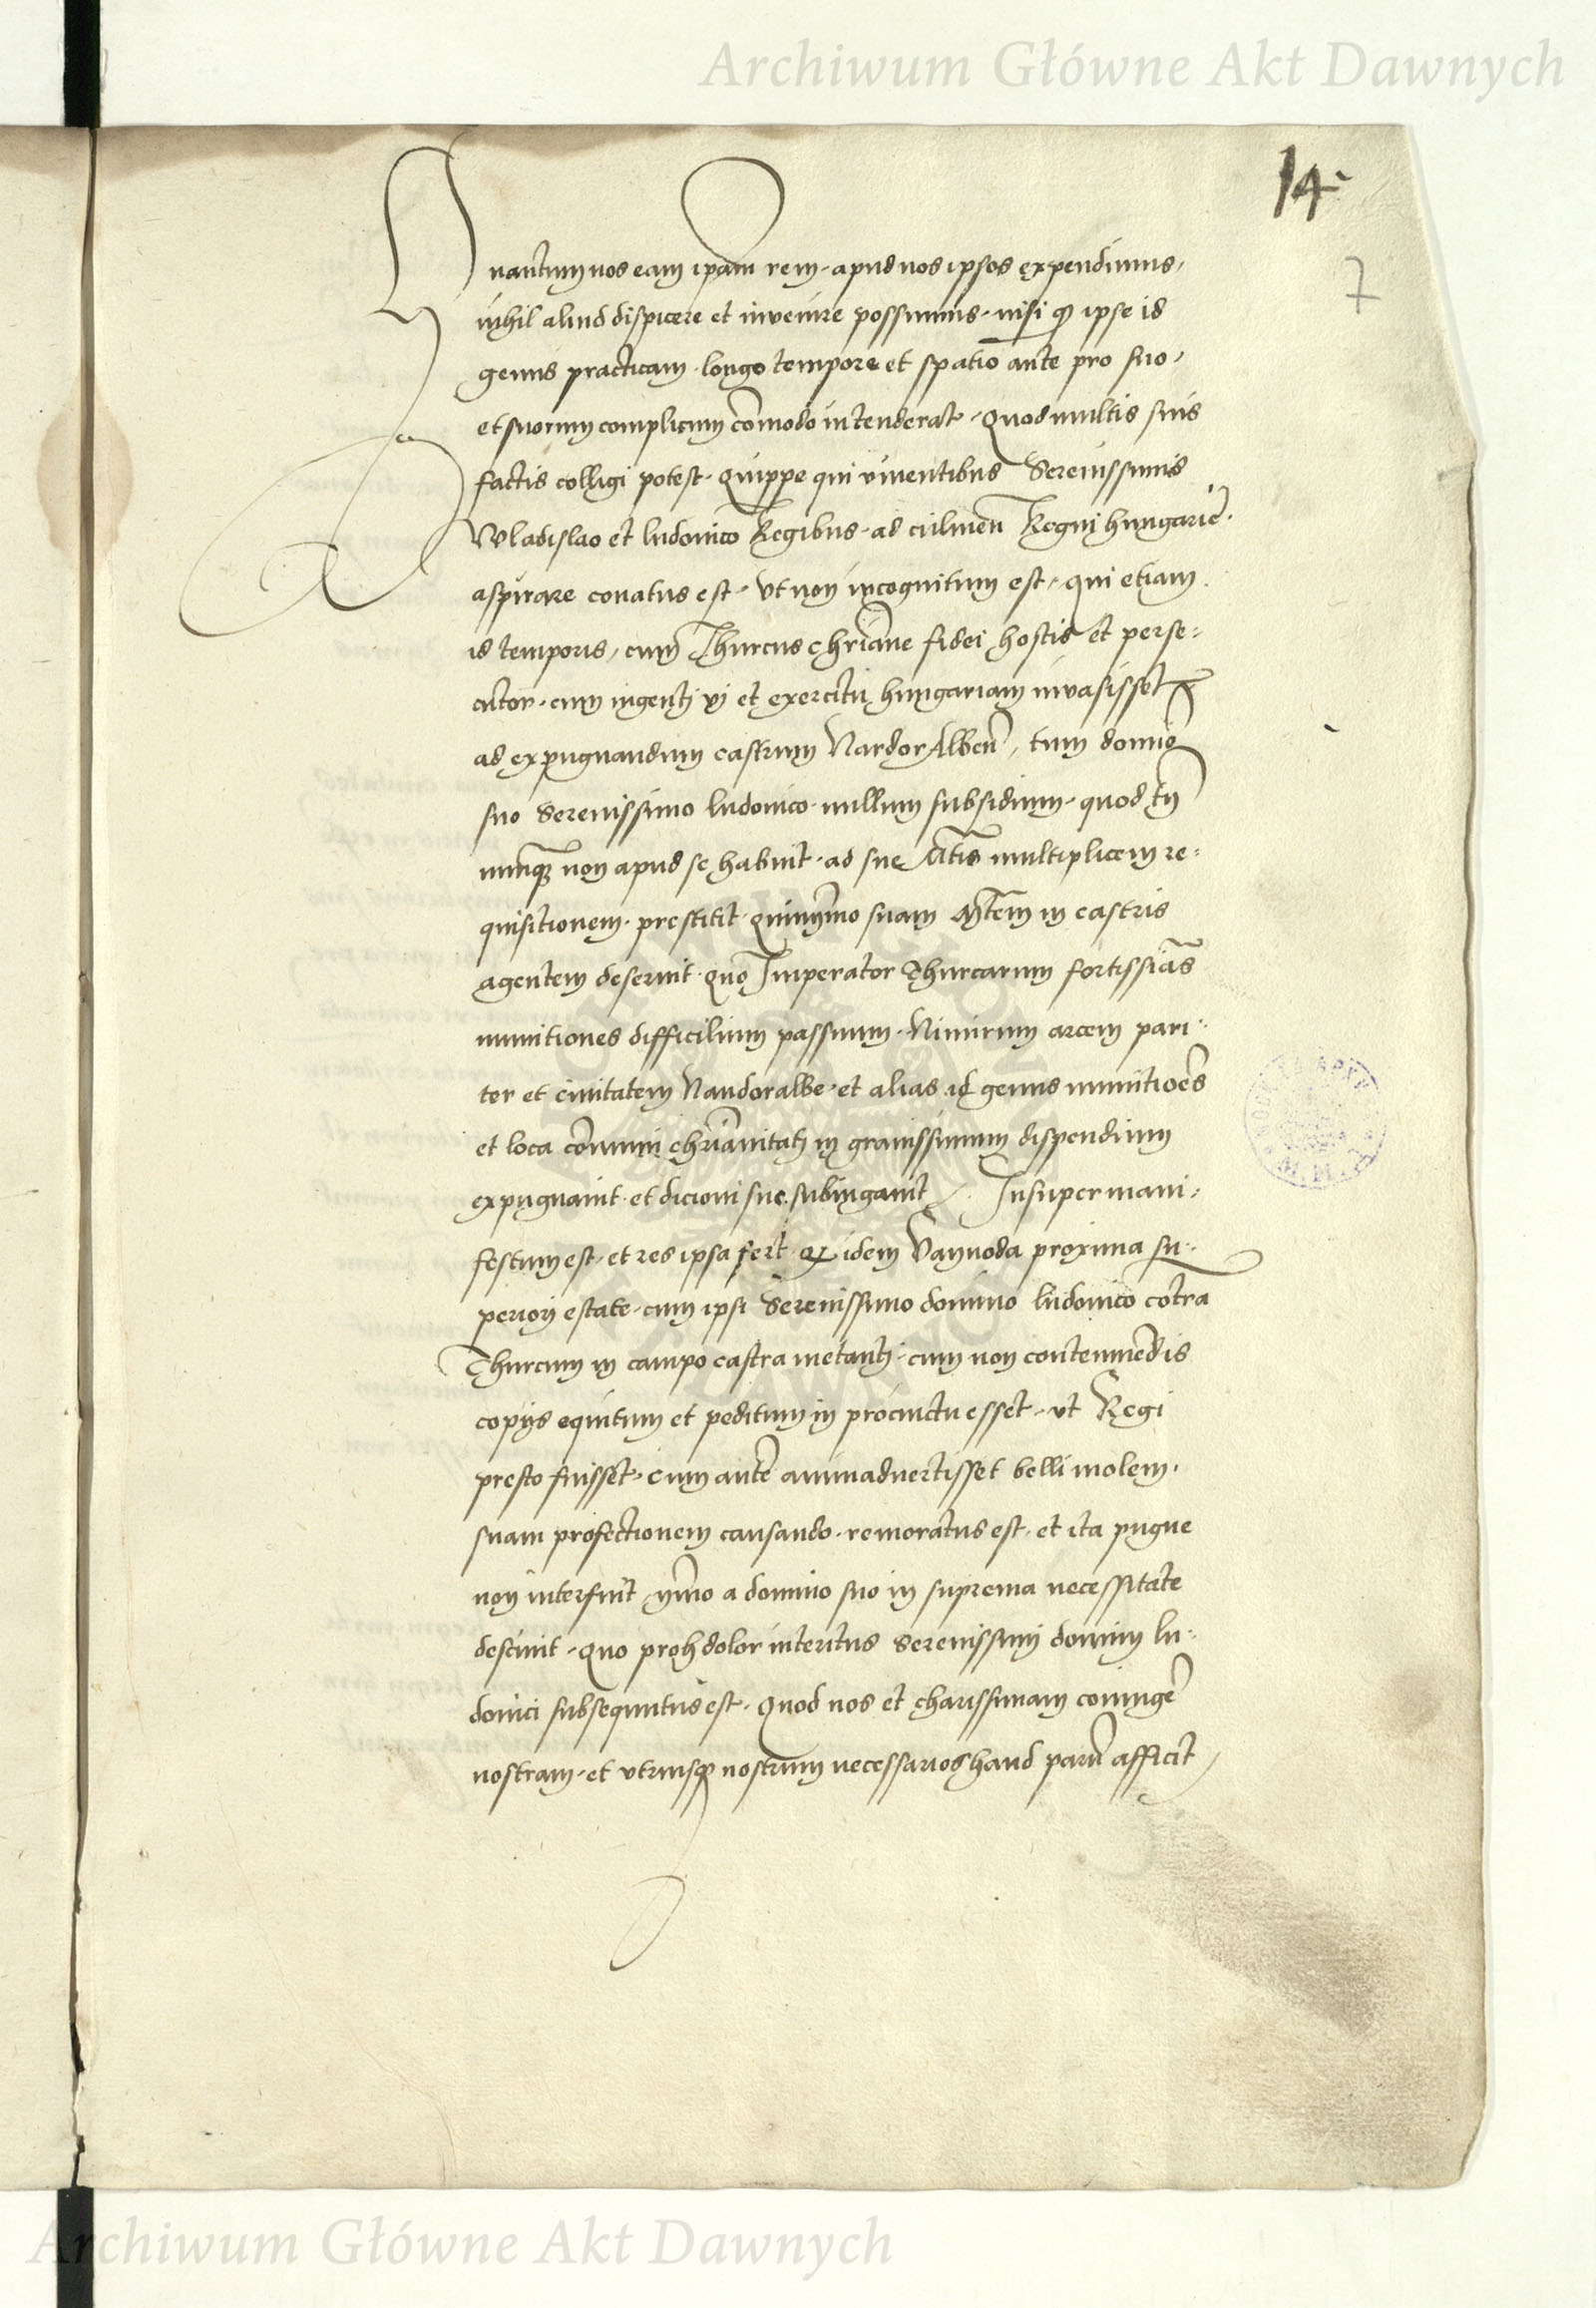 Archiwum Główne Akt Dawnych
14.
7
Quantum nos eam ipam̄ rem · apud nos ipsos expendimus,
nihil aliud dispicere et invenire possumus · nisi ꝙ ipse id
genus practicam · longo tempore et spatio ante pro suo,
et suorum complicum cōmodo intenderat · Quod multis suis
factis colligi potest · Quippe qui viventibus Serenissimis
Wladislao et ludovico Regibus · ad culmen Regni hungariē ·
aspirare conatus est · Ut non incognitum est · qui etiam
id temporis, cum Thurcus chr̄iane fidei hostis et perse:
cutor · cum ingenti vi et exercitu hungariam invasisset
ad expugnandum castrum NandorAlbeñ, tum domīo
suo Serenissimo ludovico · nullum subsidium · quod tñ
nunq̄ non apud se habuit · ad sue M̄tis multiplicem re:
quisitionem · prestitit · Quinym̄o suam M̄tem in castris
agentem deseruit · quo Imperator Thurcarum fortissīas
munitiones difficilium passuum · Nimirum arcem pari:
ter et civitatem Nandoralbe · et alias id genus munitiōes
et loca cōmuni chr̄ianitati in gravissimum dispendium
expugnavit · et dicioni sue subiugavit / . Insuper mani:
festum est · et res ipsa fert · ꝙ idem Vayvoda proxima su:
periori estate · cum ipsi Serenissimo domino ludovico cōtra
Thurcum in campo castra metanti · cum non contemnēdis
copijs equitum et peditum in procinctu esset · ut Regi
presto fuisset · cum ante animadvertisset belli molem ·
suam profectionem causando · remoratus est · et ita pugne
non interfuit ym̄o a domino suo in suprema necessitate
descivit · Quo proh dolor interitus Serenissimi domini lu:
dovici subsequutus est · Quod nos et charissimam coniugē
nostram · et utriusq̄ nostrum necessarios haud parū afficit /
Archiwum Główne Akt Dawnych